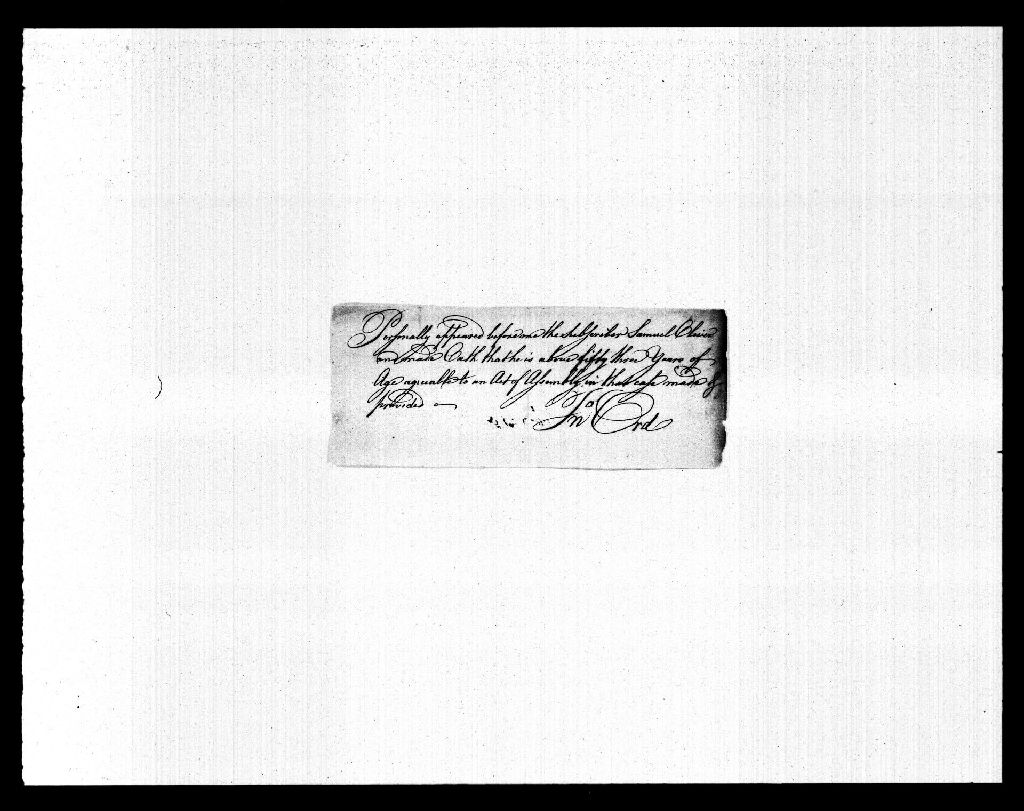 Personally appeared before me the Subscriber Samuel Oliver
and made Oath that he is above fifty three Years of
Age agreeable to an Act of Assembly in that case made &
provided
Jno Ord